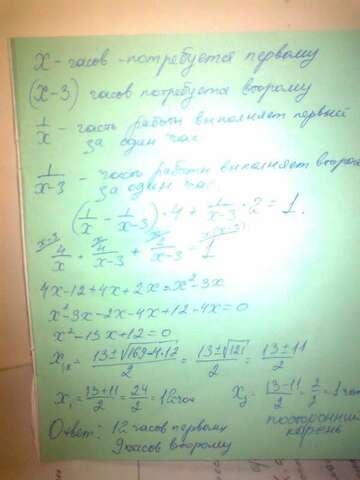 x - часов - потребуется первому
(x-3) часов потребуется второму
1/x - часть работы выполняет первый
за один час
1/(x-3) - часть работы выполняет второй
за один час
(1/x + 1/(x-3)) · 4 + 1/(x-3) · 2 = 1.
4/x + 4/(x-3) + 2/(x-3) = 1
4x-12+4x+2x=x²-3x
x²-3x-2x-4x+12-4x=0
x²-13x+12=0
x₁,₂ = (13±√(169-4·12))/2 = (13±√121)/2 = (13±11)/2
x₁ = (13+11)/2 = 24/2 = 12 час x₂ = (13-11)/2 = 2/2 = 1 час
посторонний
корень
Ответ: 12 часов первому
9 часов второму